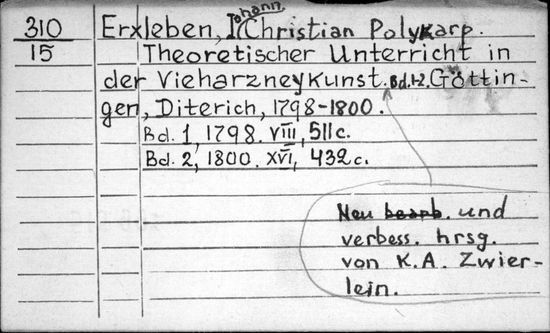 310
15
Erxleben, Johann Christian Polykarp.
Theoretischer Unterricht in
der Vieharzneykunst. Bd. 1-2. Göttin-
gen, Diterich, 1798-1800.
Bd. 1, 1798. VIII, 511 c.
Bd. 2, 1800. XVI, 432 c.
Neu bearb. und
verbess. hrsg.
von K.A. Zwier-
lein.